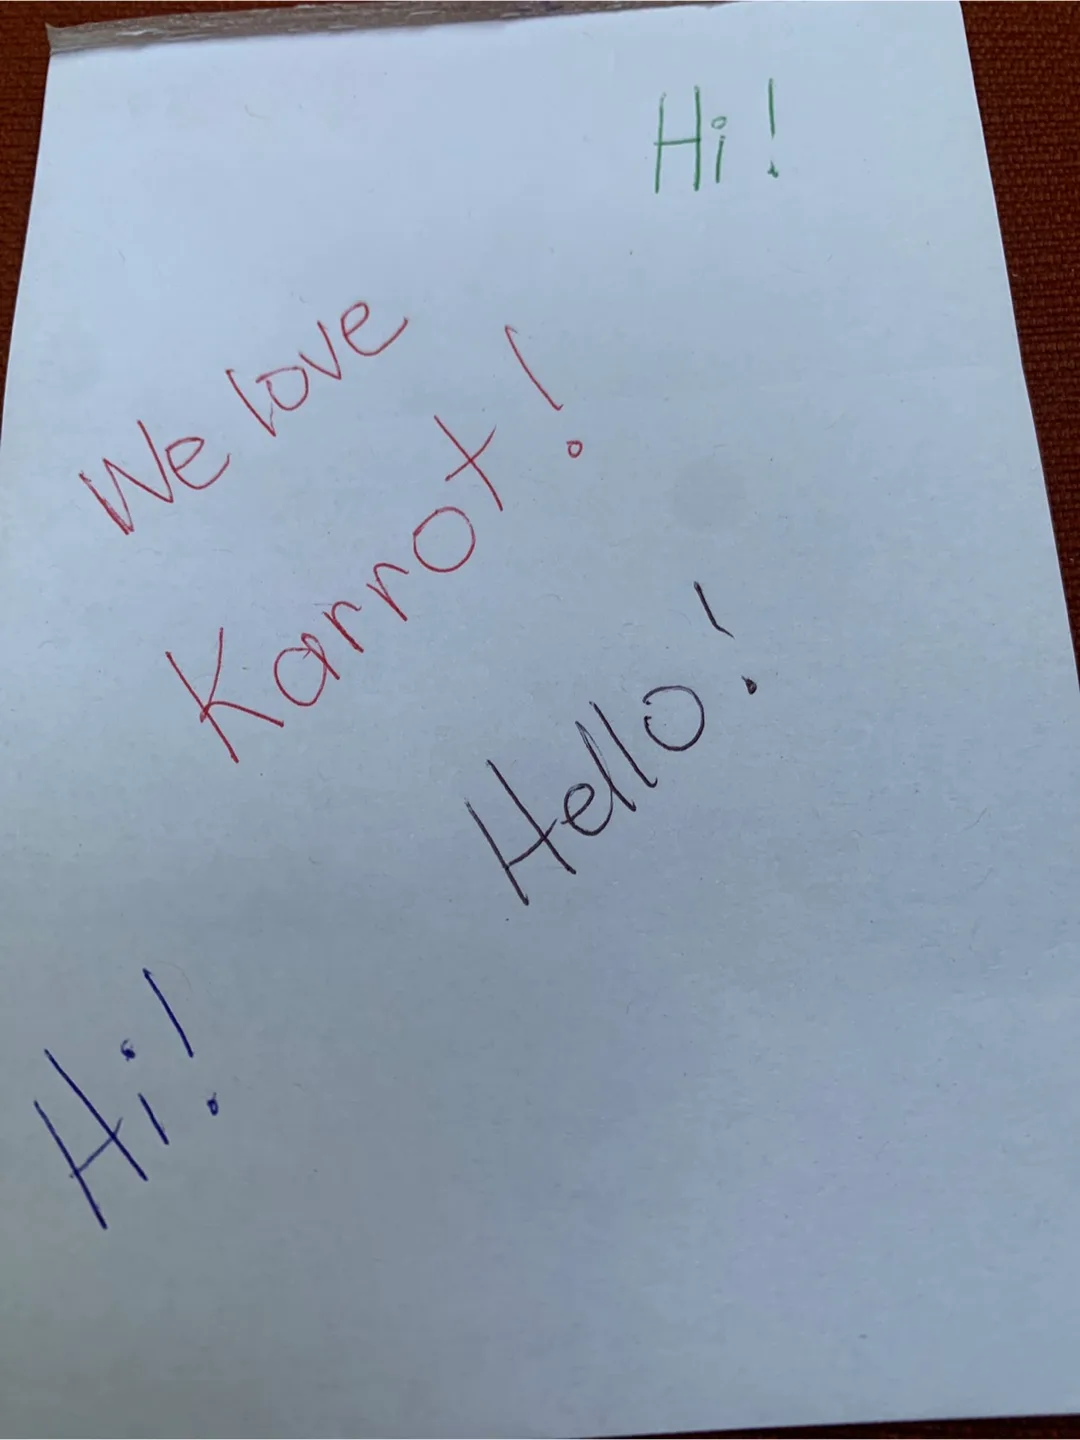 Hi!
We love
Karrot!
Hello!
Hi!